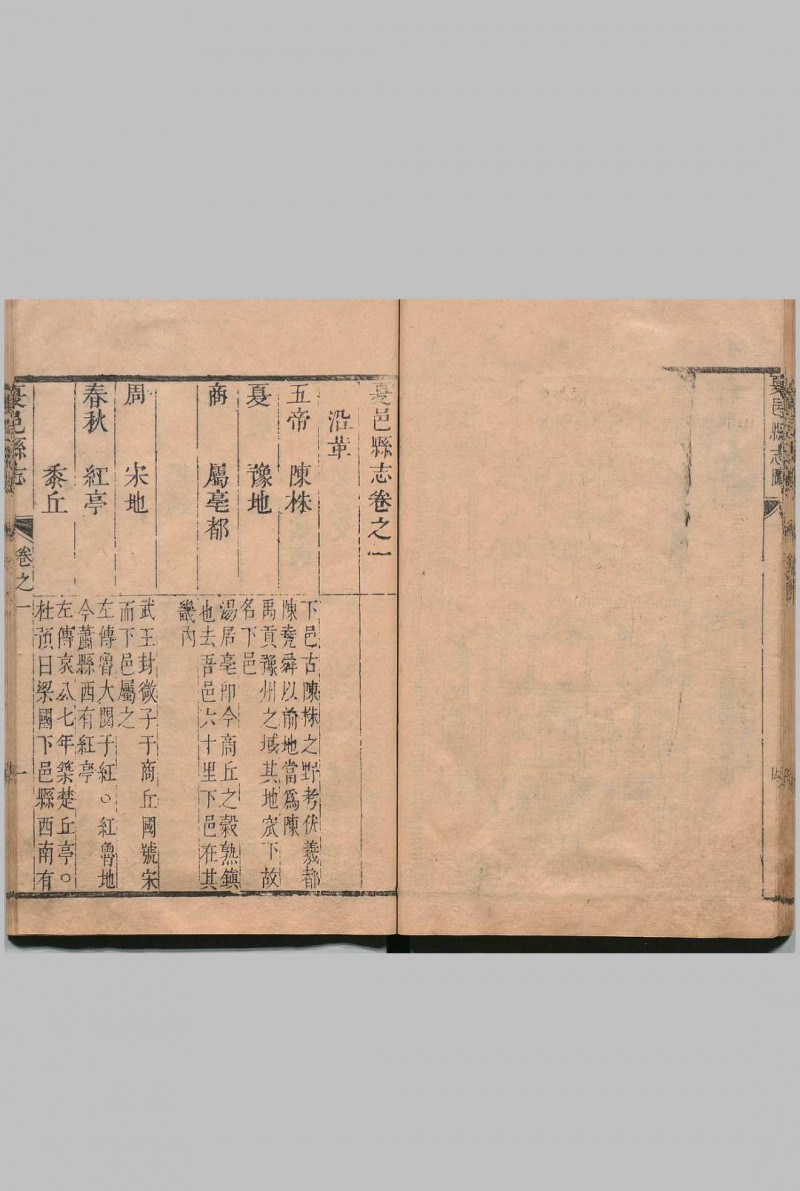 夏邑縣志圖
夏邑縣志卷之一
沿革
五帝 陳株
下邑古陳株之野考伏羲都
陳堯舜以前地當為陳
夏 豫地
禹貢豫州之域其地窊下故
名下邑
商 屬亳都
湯居亳即今商丘之穀熟鎮
也去吾邑六十里下邑在其
畿內
周 宋地
武王封微子于商丘國號宋
而下邑屬之
春秋 紅亭
左傳魯大閱于紅○紅魯地
今蕭縣西有紅亭
黍丘
左傳哀公七年築楚丘亭○
杜預曰梁國下邑縣西南有
夏邑縣志 卷之一 一